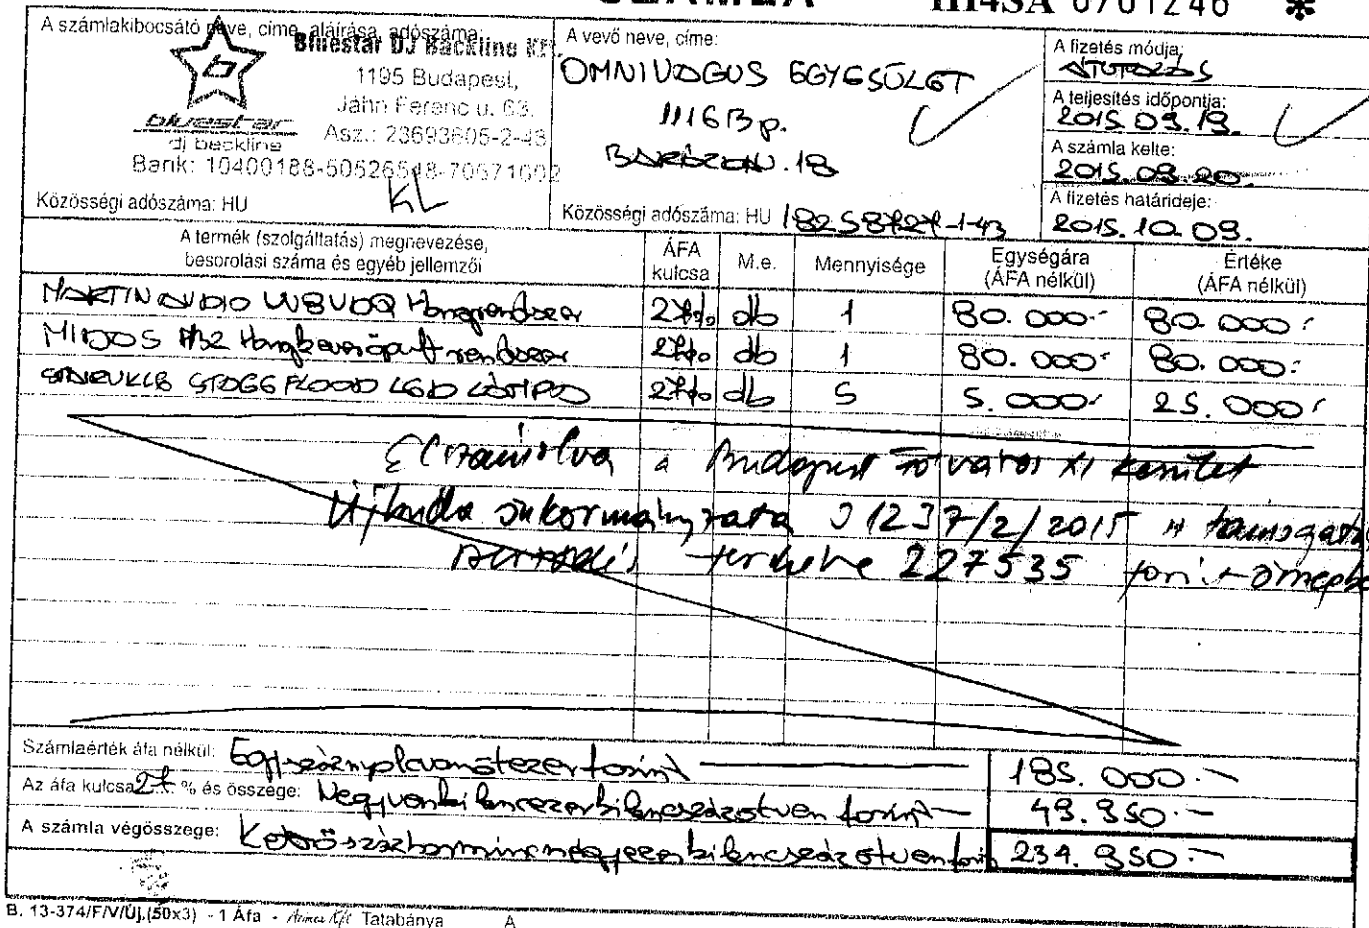 SZÁMLA HI4SA 0701246 *
A számlakibocsátó neve, címe, aláírása, adószáma:
Bluestar DJ Backline Kft.
1195 Budapest,
Jahn Ferenc u. 63.
Asz.: 23693605-2-43
bluestar
dj backline
Bank: 10400188-50526548-70571002
KL
Közösségi adószáma: HU
A vevő neve, címe:
OMNIVAGUS EGYESÜLET
1116 Bp.
18
Közösségi adószáma: HU 18258727-1-43
A fizetés módja:
ÁTUTALÁS
A teljesítés időpontja:
2015.09.19.
A számla kelte:
2015.09.20.
A fizetés határideje:
2015.10.09.
A termék (szolgáltatás) megnevezése, besorolási száma és egyéb jellemzői ÁFA kulcsa M.e. Mennyisége Egységára (ÁFA nélkül) Értéke (ÁFA nélkül)
MARTIN AUDIO W8VDQ Hangrendszer 27% db 1 80.000.- 80.000.-
MIDAS M32 Hangkeverőpult rendszer 27% db 1 80.000.- 80.000.-
STAGE FLOOD LED LÁMPA 27% db 5 5.000.- 25.000.-
Elszámolva a Budapest Főváros XI kerület
Újbuda önkormányzata 237/2/2015 támogatási
szerződés terhére 227535 forint összegben
Számlaérték áfa nélkül: Egyszáznyolcvanötezer forint 185.000.-
Az áfa kulcsa 27 % és összege: Negyvenkilencezerkilencszázötven forint 49.950.-
A számla végösszege: Kettőszázharmincnégyezerkilencszázötven forint 234.950.-
B. 13-374/F/V/Új.(50x3) - 1 Áfa - Kft Tatabánya A